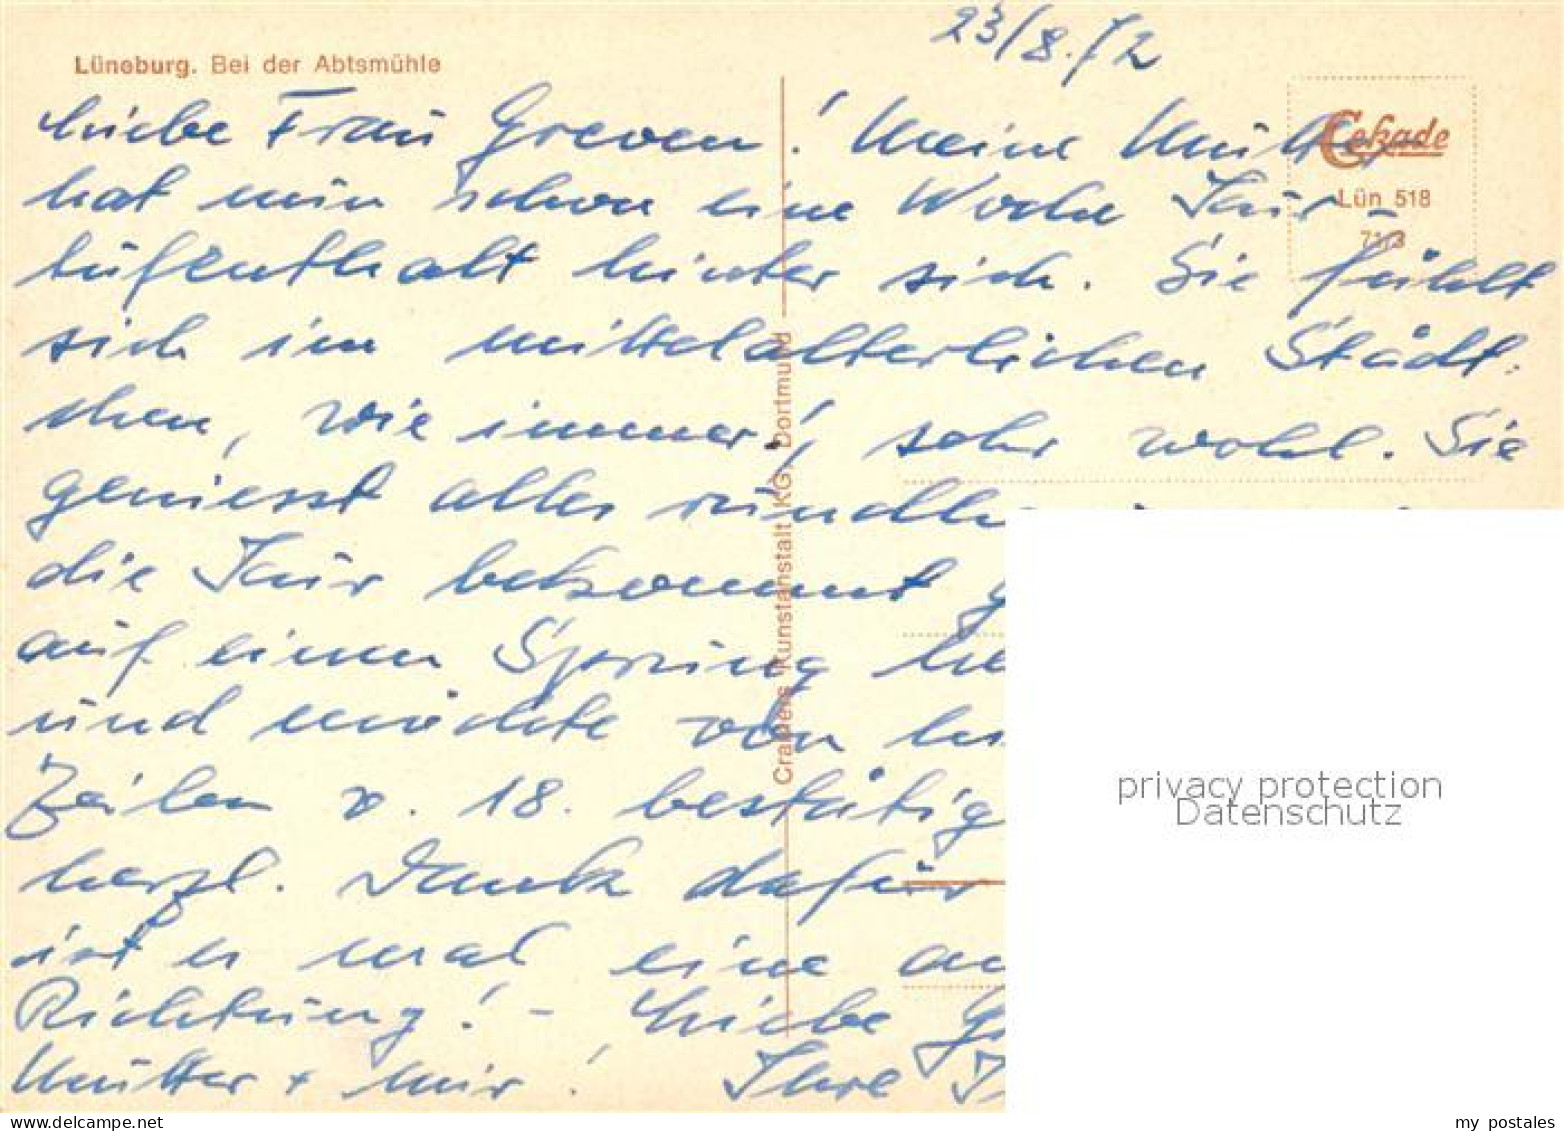 23/8.72
Lüneburg. Bei der Abtsmühle
Cekade
Lün 518
Liebe Frau Greven! Meine Mutter
hat nun schon eine Woche Kur-
aufenthalt hinter sich. Sie fühlt
sich im mittelalterlichen Städt-
chen, wie immer, sehr wohl. Sie
geniesst alles
die Kur bekommt
auf einen Sprung
und möchte von
Zeilen v. 18. bestätig
herzl. Dank dafür
ist es mal eine
Richtung! - Liebe
Mutter + mir! Ihre
Cramers Kunstanstalt KG, Dortmund
privacy protection
Datenschutz
my postales